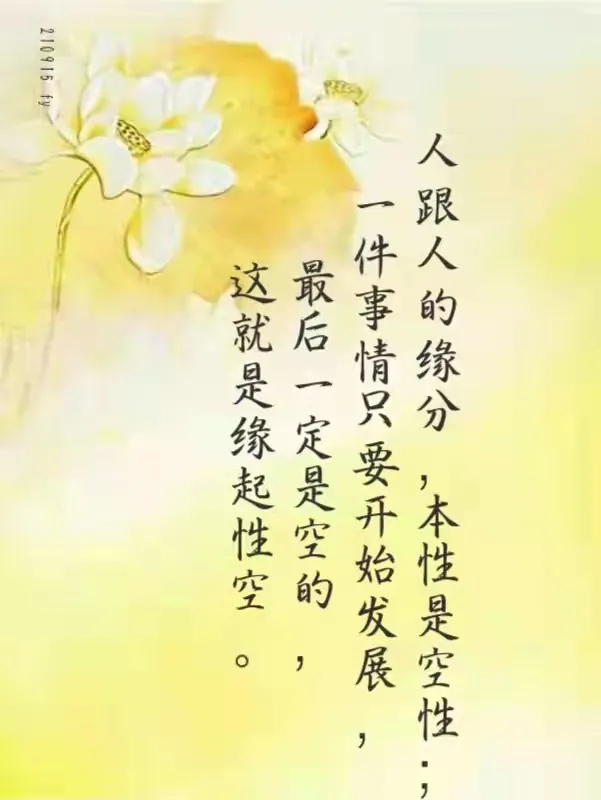 人跟人的缘分，本性是空性；
一件事情只要开始发展，
最后一定是空的，
这就是缘起性空。
210915 fy